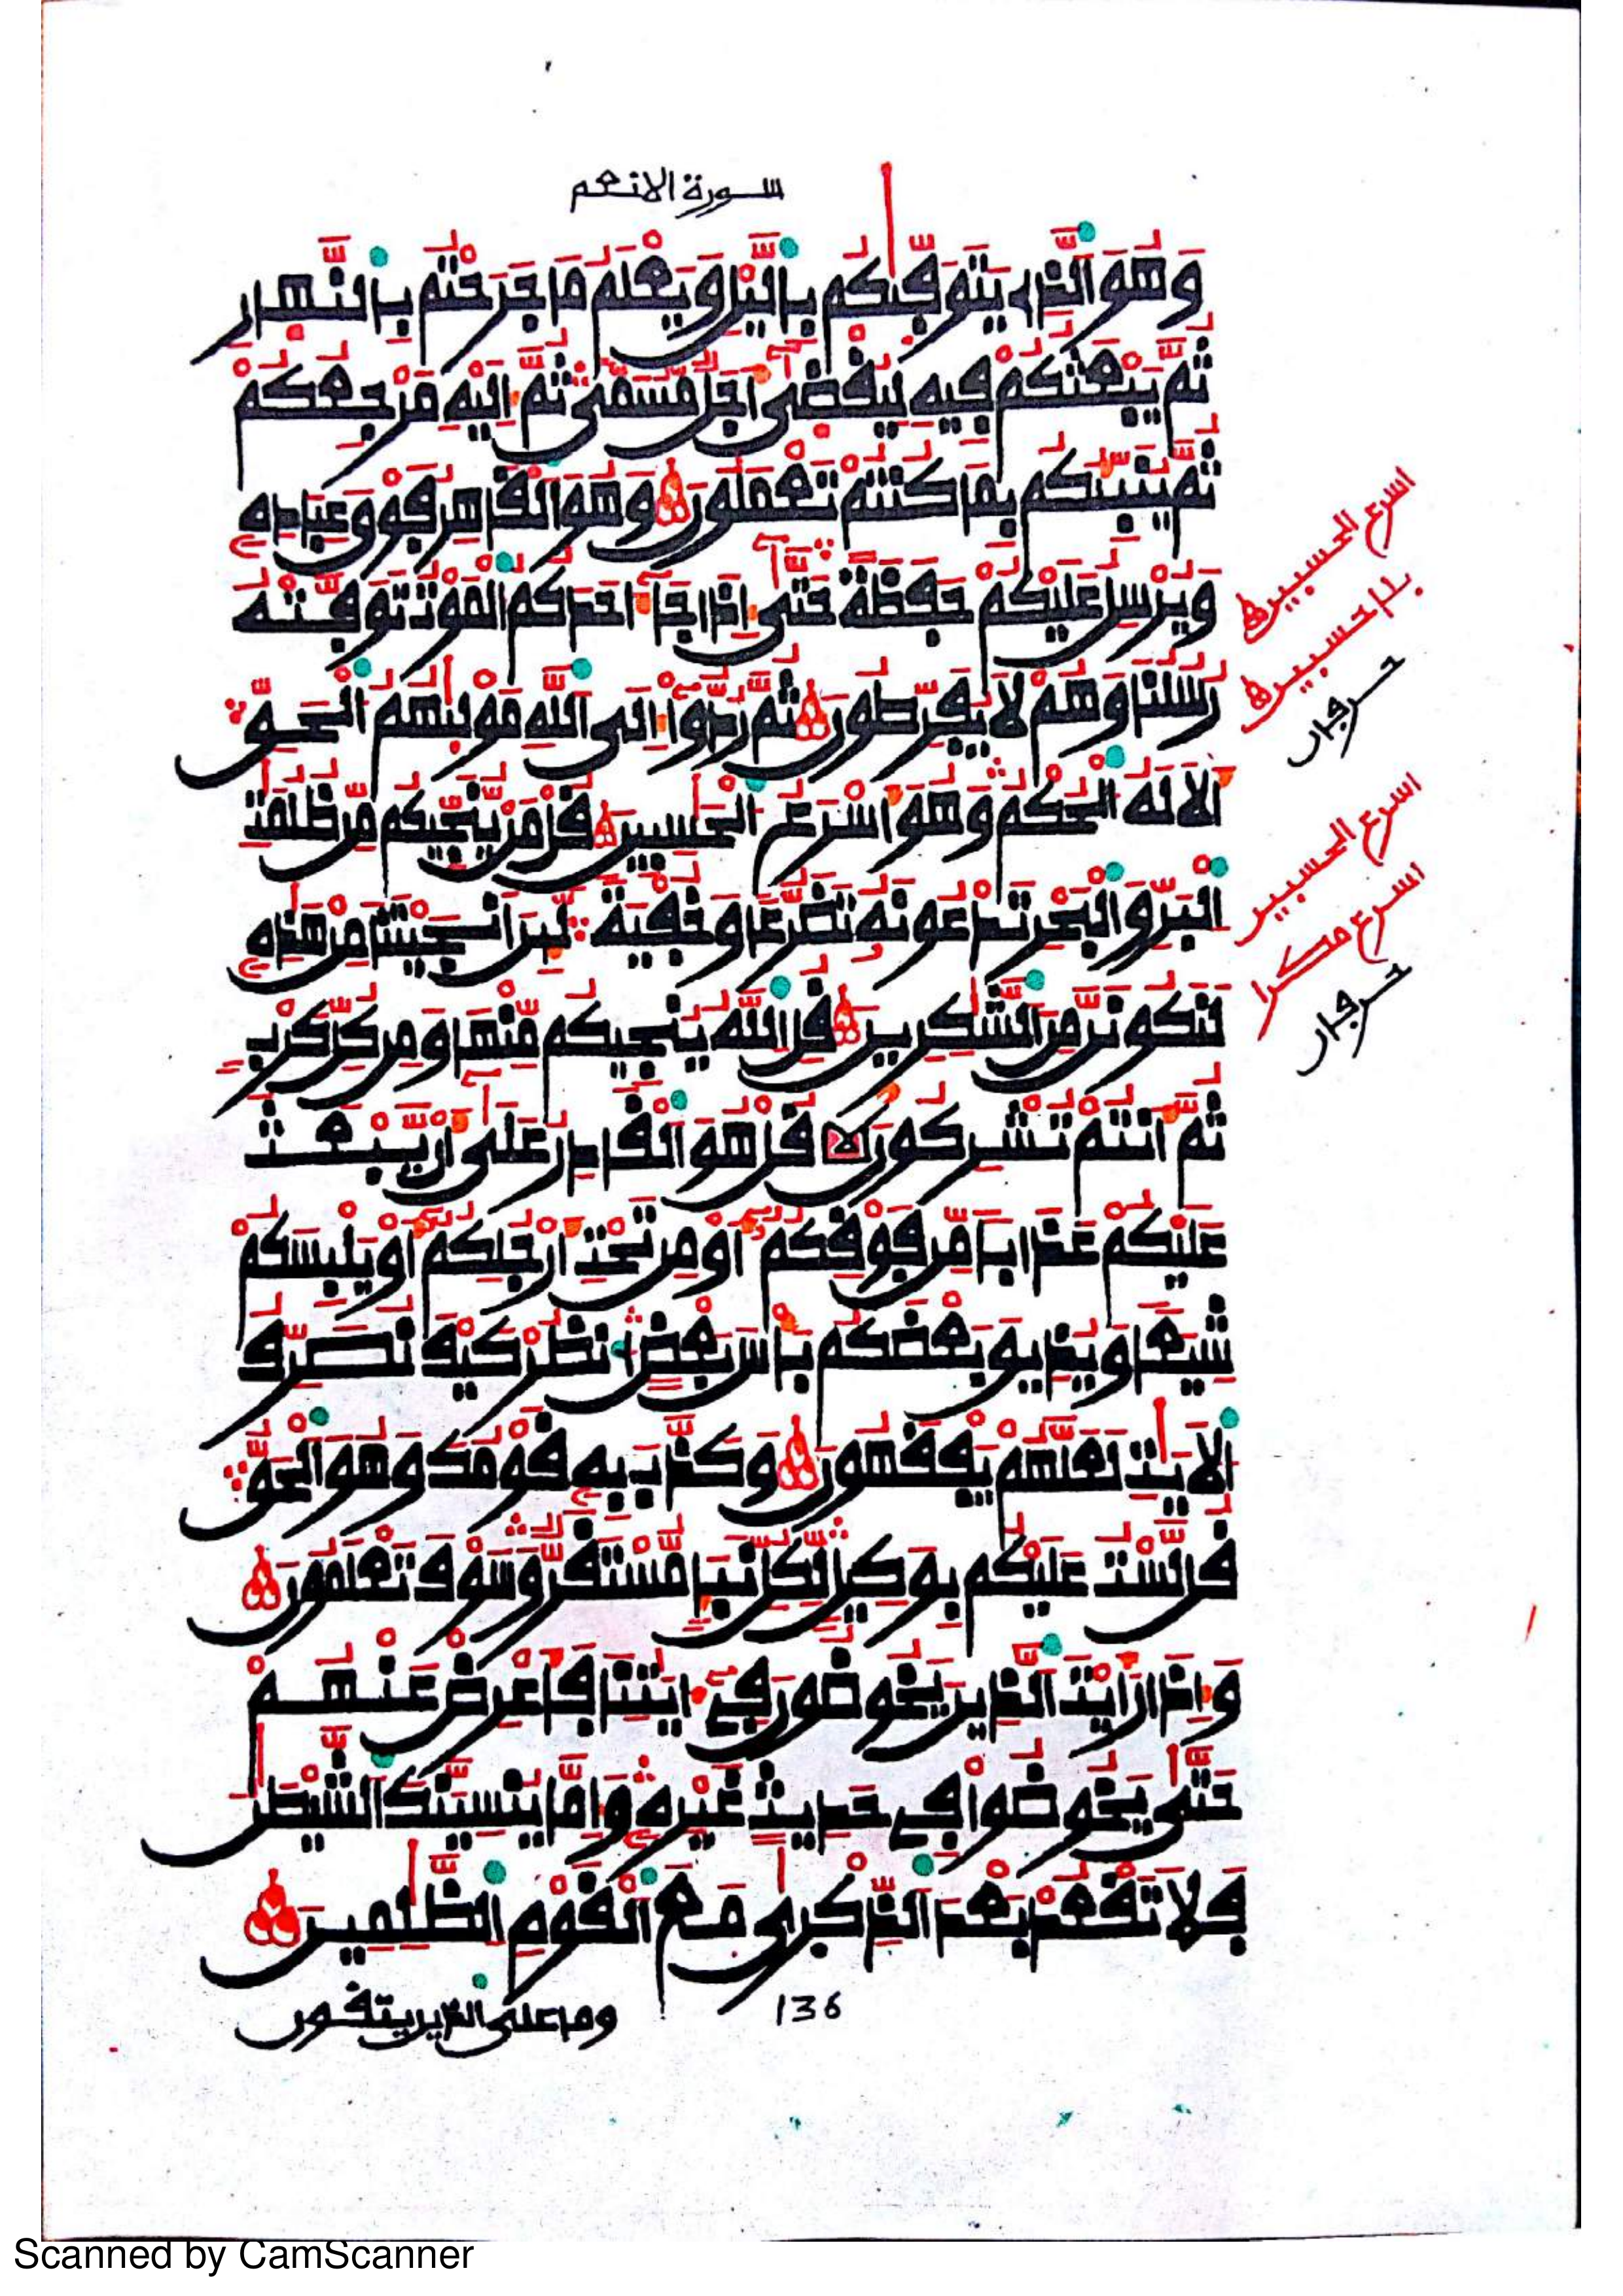 سورة الانعم
وَهُوَ الذِے يَتَوَفّٰيكُم بِاليْلِ وَيَعْلَمُ مَا جَرَحْتُم بِالنَّهارِ
ثُمَّ يَبْعَثُكُمْ فِيهِ لِيُقْضٰىٓ أَجَلٌ مُّسَمّىً ثُمَّ إِلَيْهِ مَرْجِعُكُمْ
ثُمَّ يُنَبِّئُكُم بِمَا كُنتُمْ تَعْمَلُونَ وَهُوَ الْقَاهِرُ فَوْقَ عِبَادِهِ
وَيُرْسِلُ عَلَيْكُمْ حَفَظَةً حَتَّىٰٓ إِذَا جَآءَ احَدَكُمُ الْمَوْتُ تَوَفَّتْهُ
رُسُلُنَا وَهُمْ لَا يُفَرِّطُونَ ثُمَّ رُدُّوٓاْ إِلَى اللَّهِ مَوْلٰيهُمُ الْحَقِّ
أَلَا لَهُ الْحُكْمُ وَهُوَ أَسْرَعُ الْحٰسِبِينَ قُلْ مَنْ يُّنَجِّيكُم مِّن ظُلُمٰتِ
الْبَرِّ وَالْبَحْرِ تَدْعُونَهُ تَضَرُّعاً وَخُفْيَةً لَّئِنَ اَنجَيْتَنَا مِنْ هَٰذِهِ
لَنَكُونَنَّ مِنَ الشَّٰكِرِينَ قُلِ اللَّهُ يُنجِيكُم مِّنْهَا وَمِن كُلِّ كَرْبٍ
ثُمَّ أَنتُمْ تُشْرِكُونَ قُلْ هُوَ الْقَادِرُ عَلَىٰٓ أَنْ يَّبْعَثَ
عَلَيْكُمْ عَذَاباً مِّن فَوْقِكُمُۥٓ أَوْ مِن تَحْتِ أَرْجُلِكُمُۥٓ أَوْ يَلْبِسَكُمْ
شِيَعاً وَيُذِيقَ بَعْضَكُم بَأْسَ بَعْضٍ انظُرْ كَيْفَ نُصَرِّفُ
الَايَٰتِ لَعَلَّهُمْ يَفْقَهُونَ وَكَذَّبَ بِهِ قَوْمُكَ وَهُوَ الْحَقُّ
قُل لَّسْتُ عَلَيْكُم بِوَكِيلٍ لِّكُلِّ نَبَإٍ مُّسْتَقَرٌّ وَسَوْفَ تَعْلَمُونَ
وَإِذَا رَأَيْتَ الذِينَ يَخُوضُونَ فِےٓ ءَايَٰتِنَا فَأَعْرِضْ عَنْهُمْ
حَتَّىٰ يَخُوضُواْ فِے حَدِيثٍ غَيْرِهِ وَإِمَّا يُنسِيَنَّكَ الشَّيْطَٰنُ
فَلَا تَقْعُدْ بَعْدَ الذِّكْرَىٰ مَعَ الْقَوْمِ الظَّٰلِمِينَ
136
وما على الذين يتقون
اسرع الحسبين
بنا حسبين
حرفان
اسرع الحسبين
اسرع مكرا
حرفان
Scanned by CamScanner